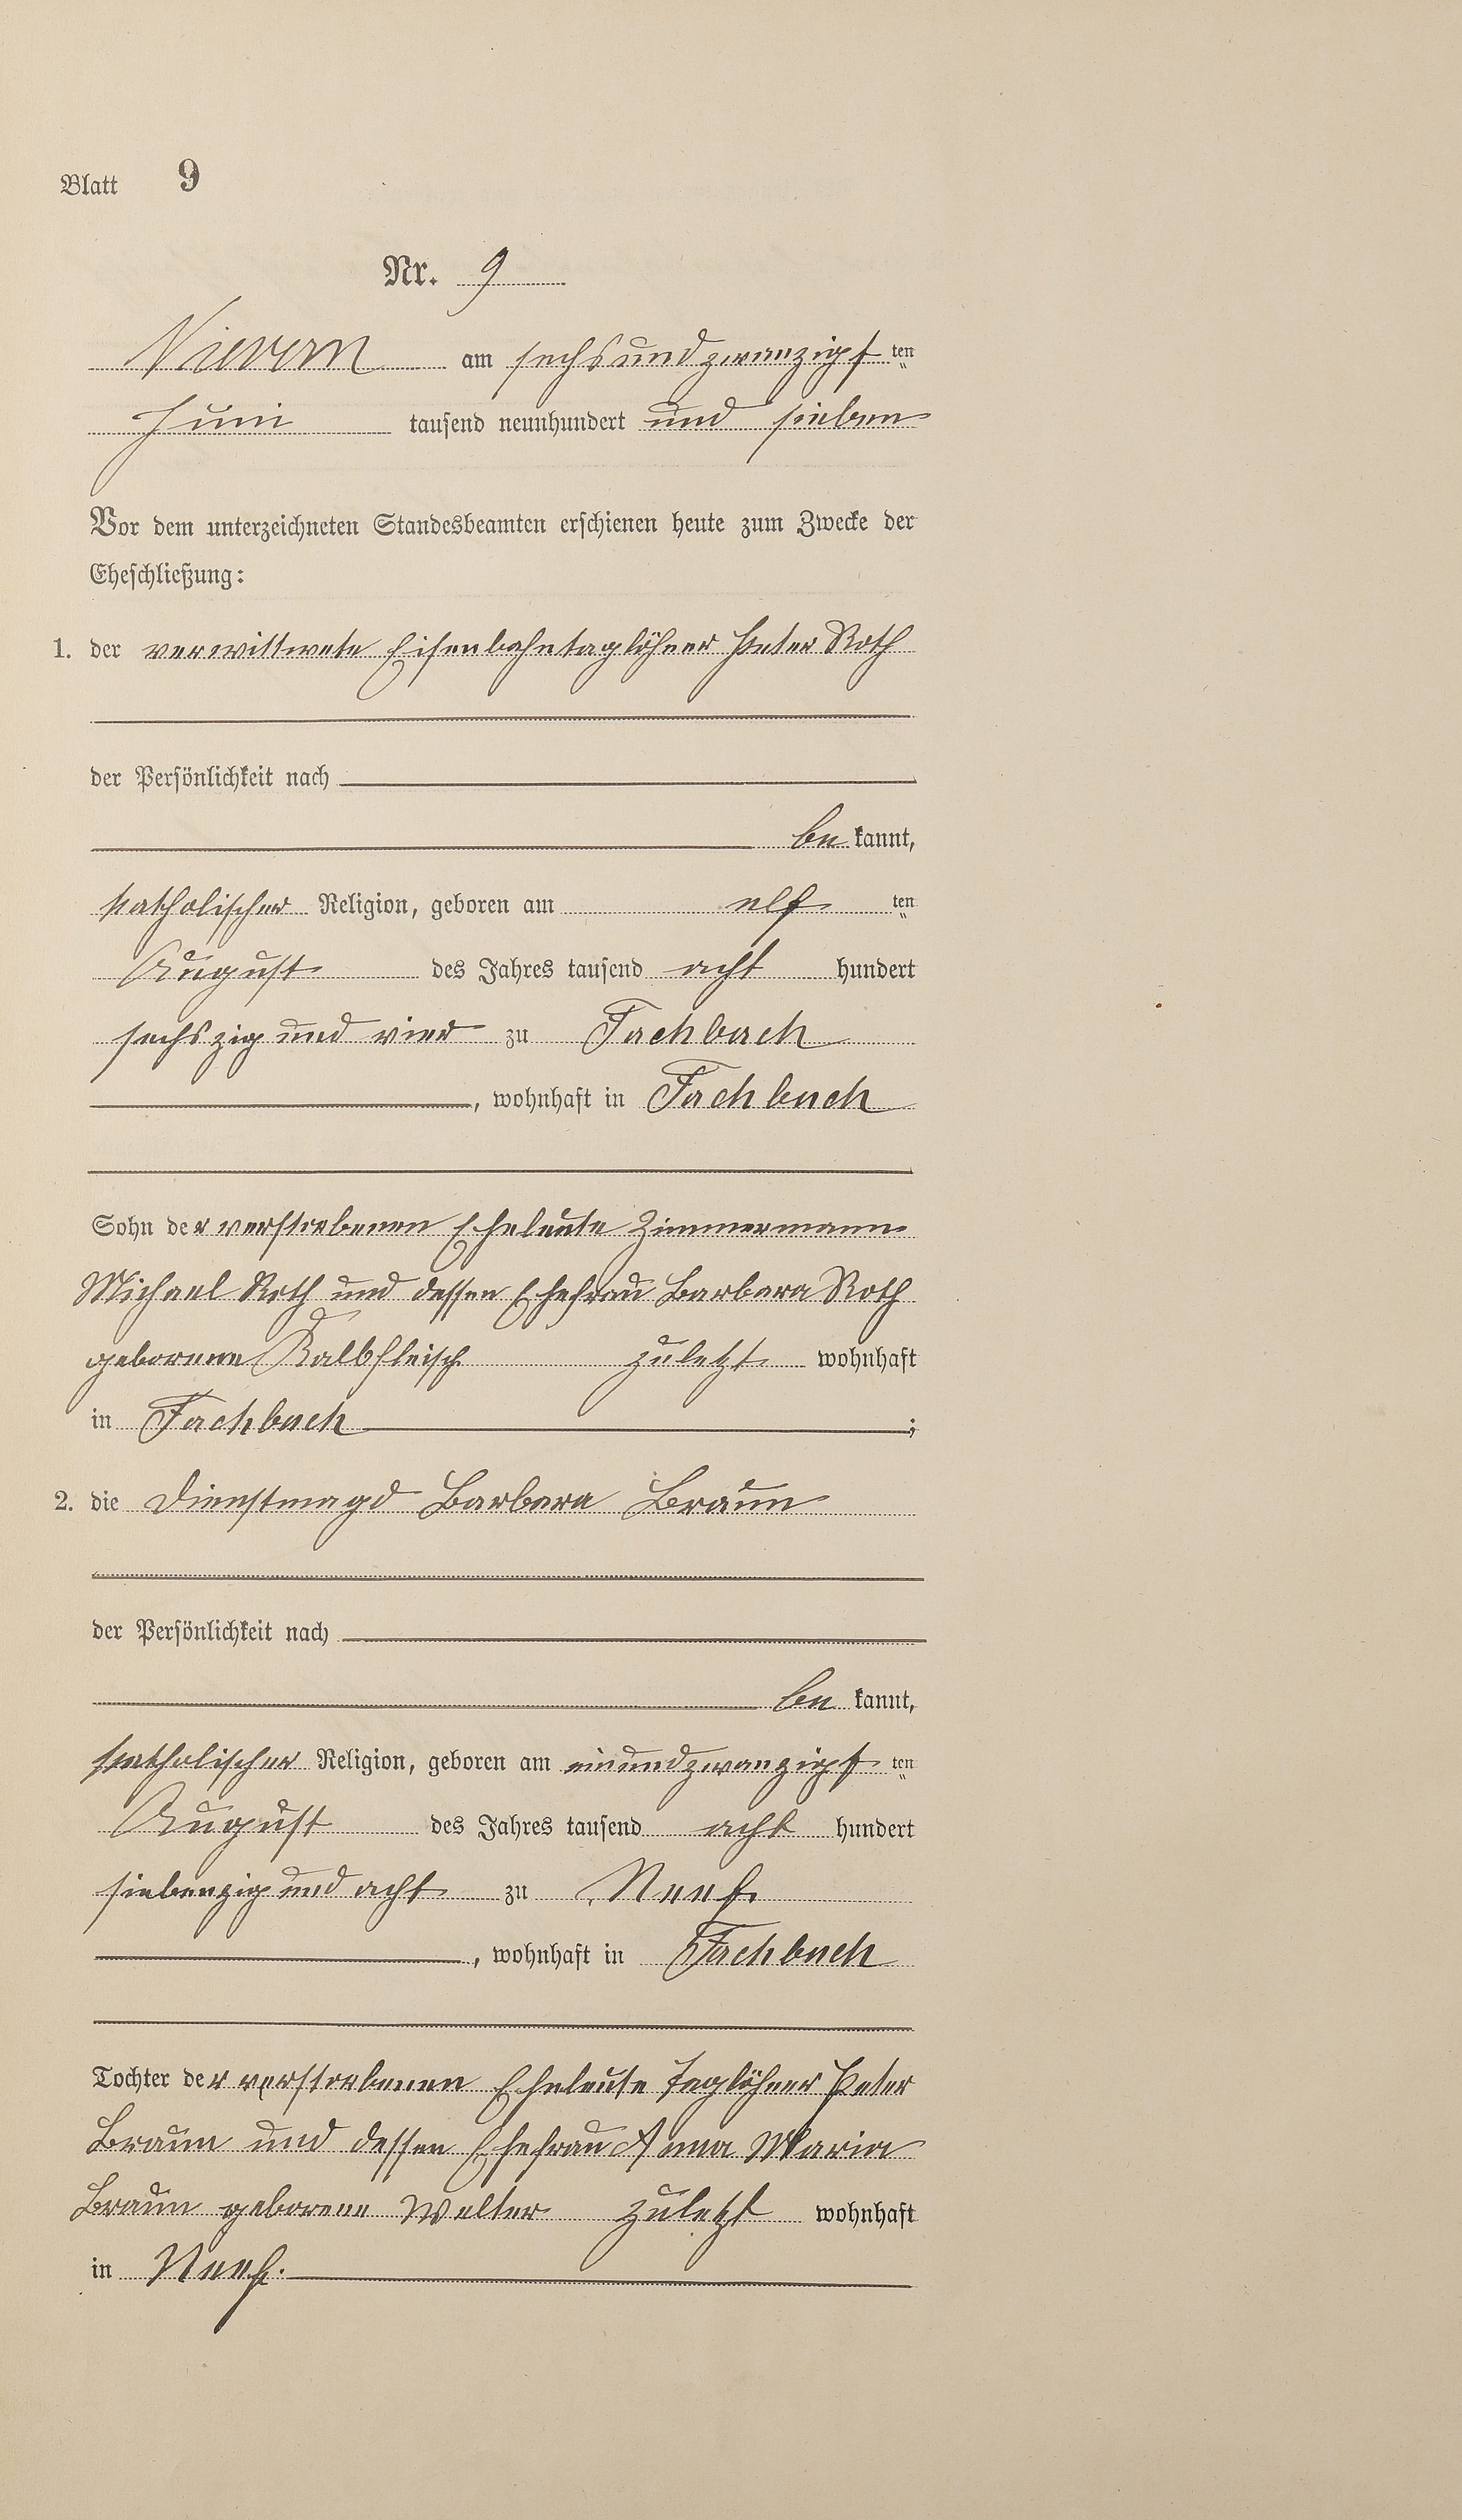 Blatt 9
Nr. 9
Nievern am sechsundzwanzigsten
Juni tausend neunhundert und sieben
Vor dem unterzeichneten Standesbeamten erschienen heute zum Zwecke der
Eheschließung:
1. der verwittwete Eisenbahntaglöhner Peter Roth
der Persönlichkeit nach
be kannt,
katholischer Religion, geboren am elf ten
August des Jahres tausend acht hundert
sechszig und vier zu Fachbach
, wohnhaft in Fachbach
Sohn der verstorbenen Eheleute Zimmermann
Michael Roth und dessen Ehefrau Barbara Roth
geborene Kalbfleisch zuletzt wohnhaft
in Fachbach ;
2. die Dienstmagd Barbara Braun
der Persönlichkeit nach
be kannt,
katholischer Religion, geboren am einundzwanzigsten
August des Jahres tausend acht hundert
siebenzig und acht zu Neef
, wohnhaft in Fachbach
Tochter der verstorbenen Eheleute Taglöhner Peter
Braun und dessen Ehefrau Anna Maria
Braun geborene Welter zuletzt wohnhaft
in Neef.